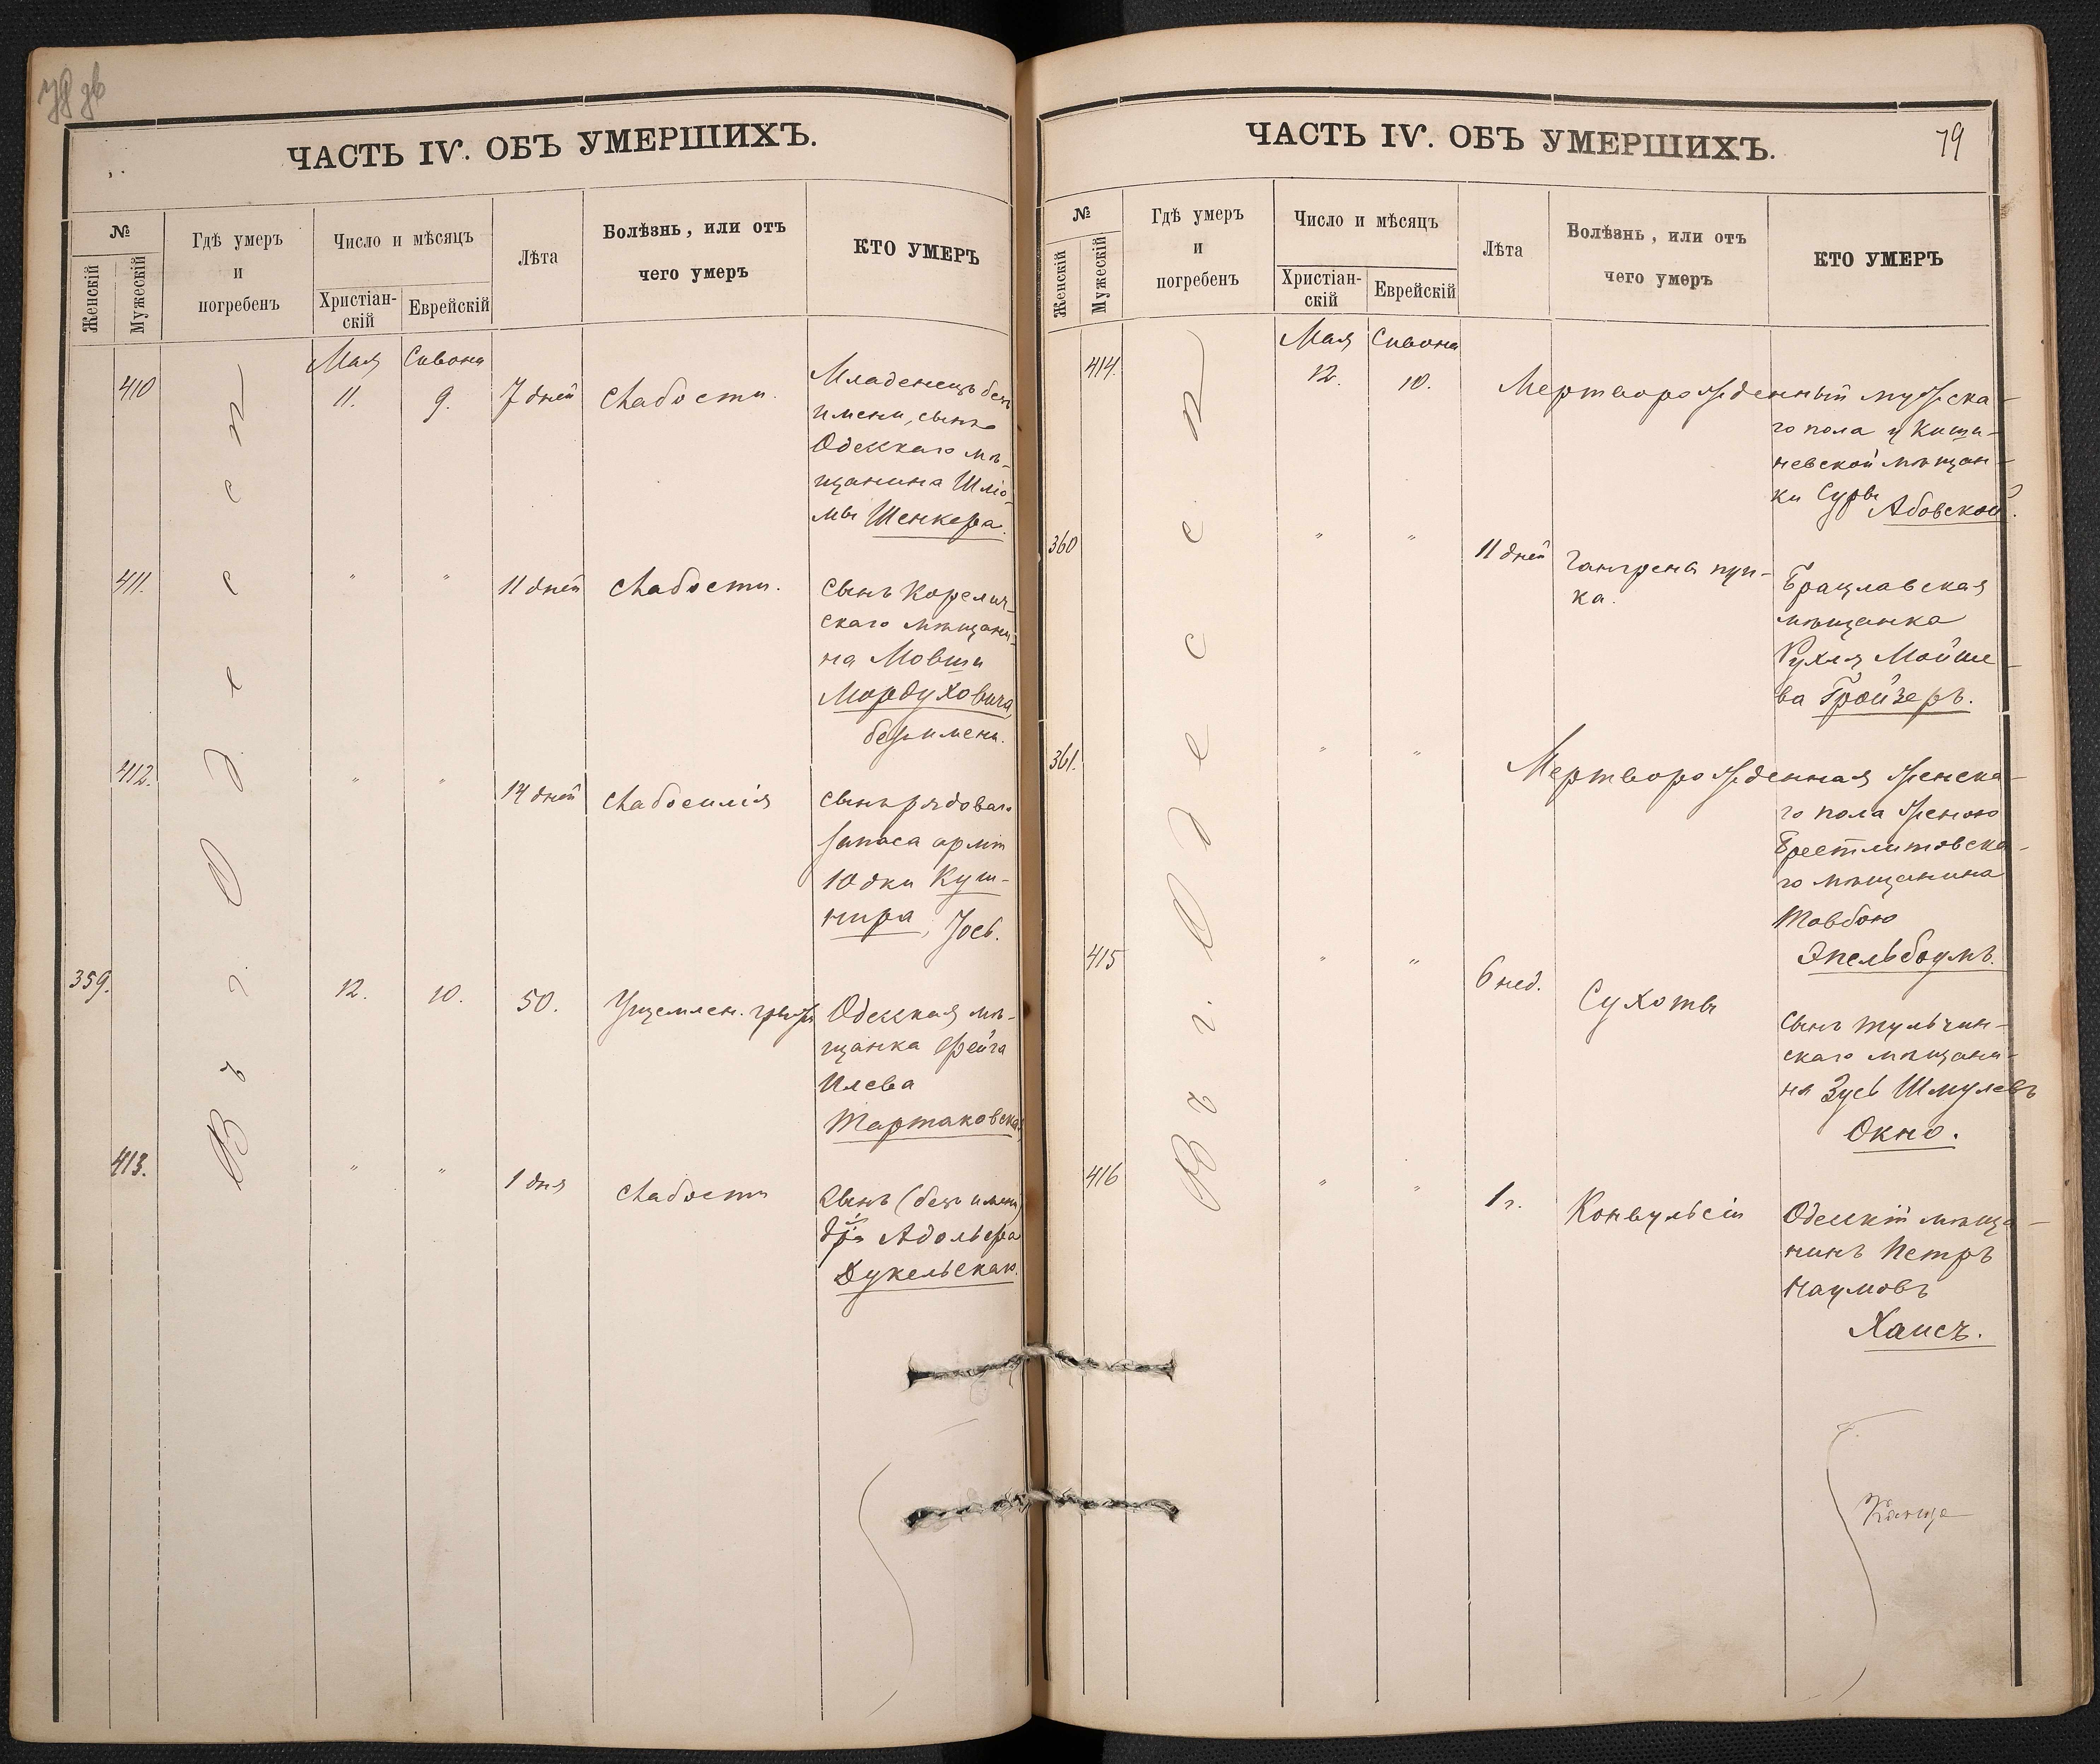 ЧАСТЬ IV. ОБЪ УМЕРШИХЪ.
№
Женскій
Мужескій
Гдѣ умеръ
и
погребенъ
Число и мѣсяцъ
Христіан-
скій
Еврейскій
Лѣта
Болѣзнь, или отъ
чего умеръ
КТО УМЕРЪ
Въ г. Одессѣ
Мая Сивона
410 11. 9. 7 дней слабости.
Младенецъ безъ
имени, сынъ
Одесскаго мѣ-
щанина Шлiо-
мы Шенкера.
411. " " 11 дней слабости.
сынъ Корелич-
скаго мѣщани-
на Мовши
Мордуховича,
безъ имени.
412. " " 14 дней слабосилія
сынъ рядоваго
запаса арміи
Юдки Куш-
нира, Іос.
359. 12. 10. 50. Ущемлен. грыжи
Одесская мѣ-
щанка Фейга
Илева
Тартаковская
413. " " 1 дня слабости
Сынъ (безъ имени)
д-ра Адольфа
Дукельскаго.
ЧАСТЬ IV. ОБЪ УМЕРШИХЪ.
79
№
Женскій
Мужескій
Гдѣ умеръ
и
погребенъ
Число и мѣсяцъ
Христіан-
скій
Еврейскій
Лѣта
Болѣзнь, или отъ
чего умеръ
КТО УМЕРЪ
Въ г. Одессѣ
Мая Сивона
414. 12. 10. Мертворожденный мужска-
го пола у Киши-
невской мѣщан-
ки Суры
Абовской.
360 " " 11 дней Гангрена пуп-
ка.
Брацлавская
мѣщанка
Рухля Мойше-
ва Гройзеръ.
361. " " Мертворожденная женска-
го пола женою
Брестлитовска-
го мѣщанина
Товбою
Эпельбоумъ.
415 " " 6 нед. Сухоты
сынъ тульчин-
скаго мѣщани-
на Зусь Шмулевъ
Окно.
416 " " 1 г. Конвульсіи
Одесскій мѣща-
нинъ Петръ
Наумовъ
Хаисъ.